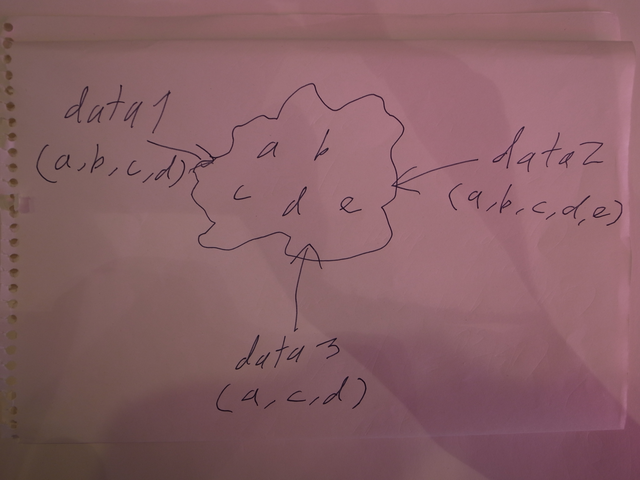 data1
(a,b,c,d)
a b
c d e
data2
(a,b,c,d,e)
data3
(a,c,d)